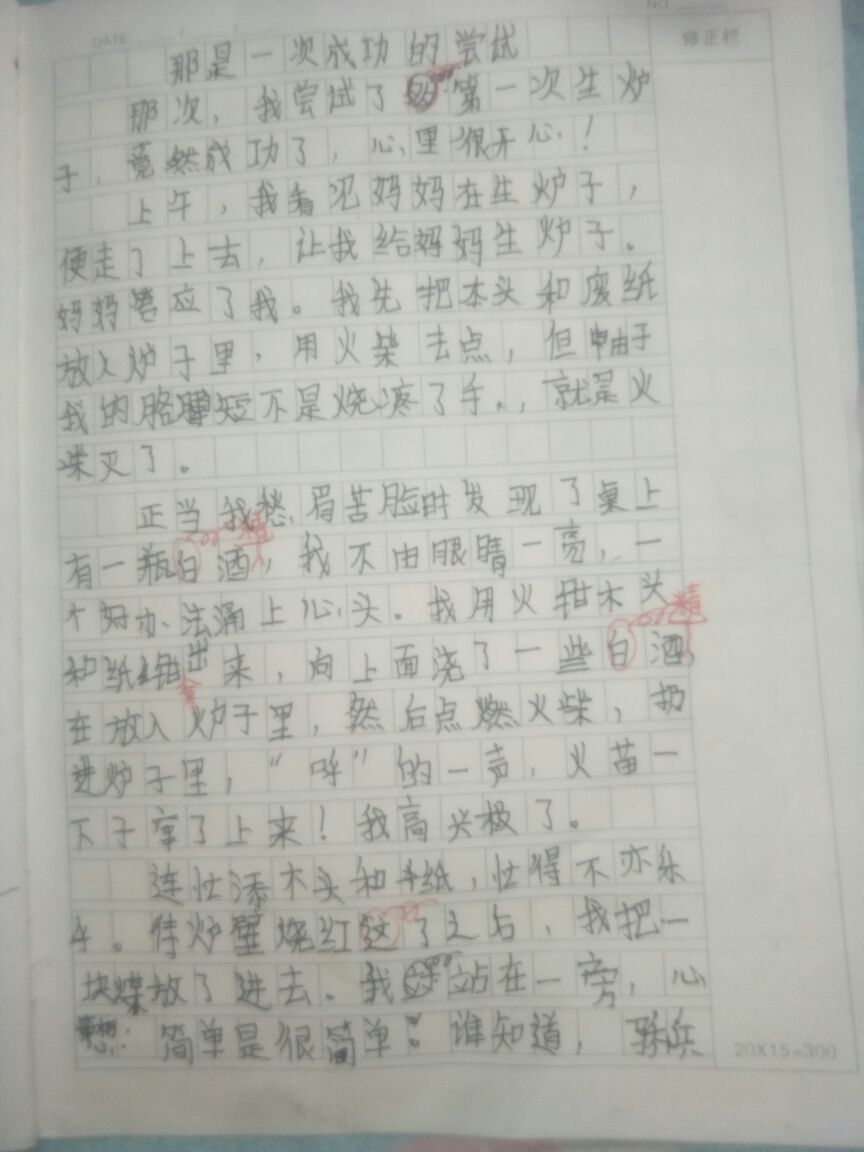 DATE
NO
修正栏
那是一次成功的尝试
那次，我尝试了第一次生炉
子，竟然成功了，心里很开心！
上午，我看见妈妈在生炉子，
便走了上去，让我给妈妈生炉子。
妈妈答应了我。我先把木头和废纸
放入炉子里，用火柴去点，但由于
我的胳膊短不是烧疼了手，就是火
柴灭了。
正当我愁眉苦脸时发现了桌上
有一瓶酒精，我不由眼睛一亮，一
个好办法涌上心头。我用火钳木头
和纸拿出来，向上面浇了一些酒精，
在放入炉子里，然后点燃火柴，扔
进炉子里，“呼”的一声，火苗一
下子窜了上来！我高兴极了。
连忙添木头和纸，忙得不亦乐
乎。待炉壁烧红了之后，我把一
块煤放了进去。我站在一旁，心
想：简单是很简单。谁知道，
20X15=300